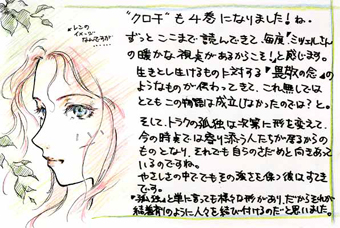 "クロチ"も4巻になりました!ね。
ずっとここまで読んできて、毎度"ミツルさん
の暖かな視点があるからこそ!と感じます。
生きとし生けるものに対する『畏敬の念』の
ようなものが伝わってきて、これ無しでは
とてもこの物語は成立しなかったのでは?と。
そして、トラクの孤独は次第に形を変えて、
今の時点では寄り添う人たちが居るからの
ものとなり、それでも自らのさだめと向きあって
いるのですね。
やさしさの中でもその強さを保つ彼はすてき
です。
"孤独"と単に言っても様々な形があり、だからそれが
結着剤のように人々を結び付けるのだと思いました。
レンの
イメージ
なんですが……